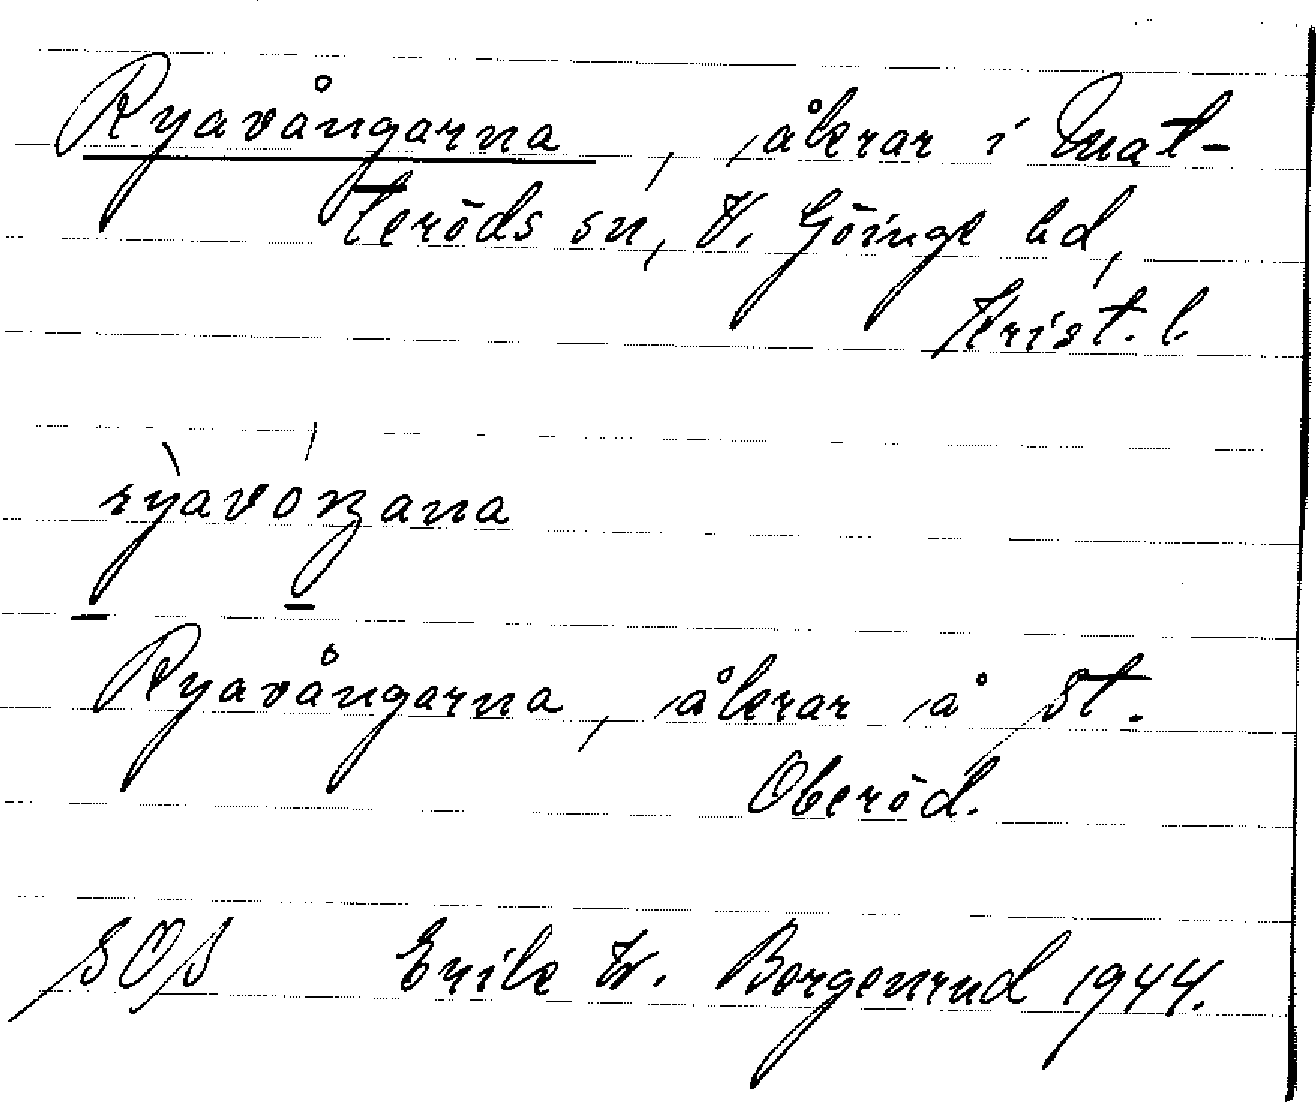 Ryavångarna, åkrar i Mat-
teröds sn, V. Göinge hd,
Krist. l.
ryavoŋana
Ryavångarna, åkrar å St.
Oberöd.
SOS Erik W. Borgenrud 1944.